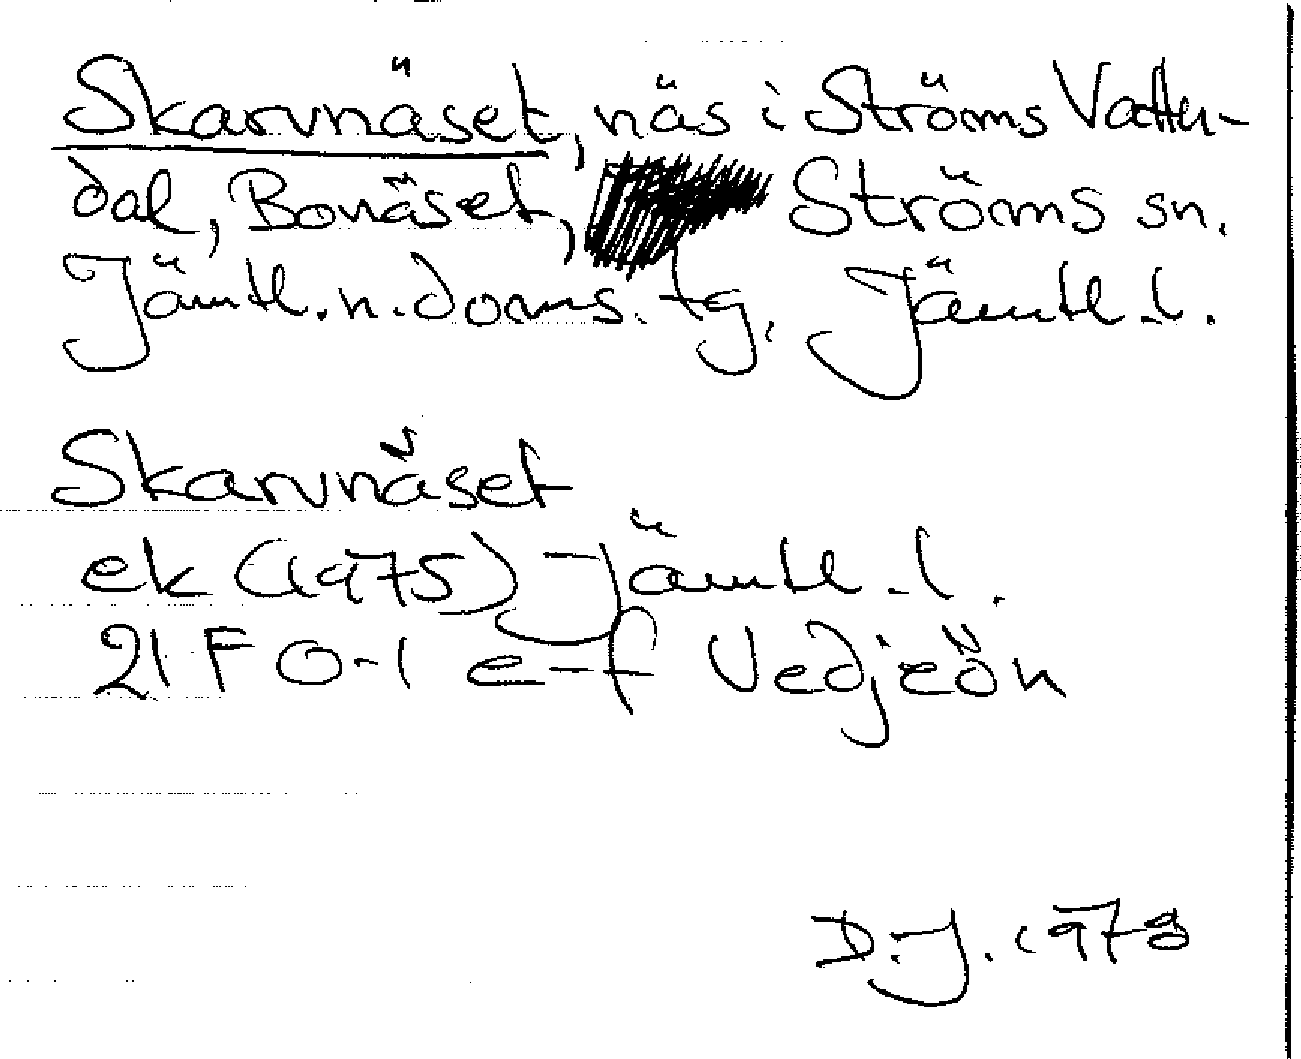 Skarvnäset, näs i Ströms Vattu-
dal, Bonäset, Ströms sn.
Jämtl. n. doms. tg, Jämtl. l.
Skarvnäset
ek (1975) Jämtl. l.
21 F 0-1 e-f Vedjeön
D.J. 1978